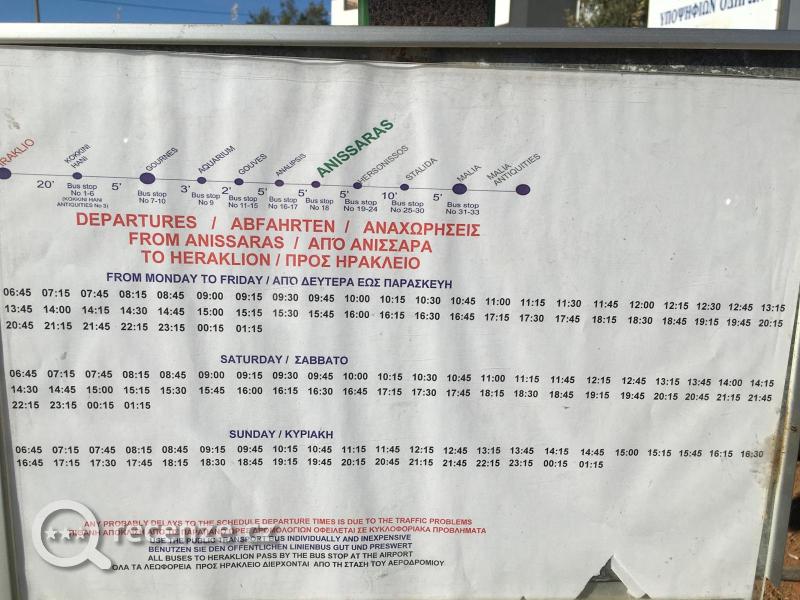 ΥΠΟΨΗΦΙΩΝ ΟΔΗΓ
RAKLIO
KOKKINI HANI
GOURNES
AQUARIUM
GOUVES
ANALIPSIS
ANISSARAS
HERSONISSOS
STALIDA
MALIA
MALIA ANTIQUITIES
20' 5' 3' 2' 5' 5' 5' 10' 5'
Bus stop No 1-6 (KOKKINI HANI ANTIQUITIES No 3)
Bus stop No 7-10
Bus stop No 9
Bus stop No 11-15
Bus stop No 16-17
Bus stop No 18
Bus stop No 19-24
Bus stop No 25-30
Bus stop No 31-33
DEPARTURES / ABFAHRTEN / ΑΝΑΧΩΡΗΣΕΙΣ
FROM ANISSARAS / ΑΠΌ ΑΝΙΣΣΑΡΑ
TO HERAKLION / ΠΡΟΣ ΗΡΑΚΛΕΙΟ
FROM MONDAY TO FRIDAY / ΑΠΌ ΔΕΥΤΕΡΑ ΕΩΣ ΠΑΡΑΣΚΕΥΗ
06:45 07:15 07:45 08:15 08:45 09:00 09:15 09:30 09:45 10:00 10:15 10:30 10:45 11:00 11:15 11:30 11:45 12:00 12:15 12:30 12:45 13:15
13:45 14:00 14:15 14:30 14:45 15:00 15:15 15:30 15:45 16:00 16:15 16:30 16:45 17:15 17:30 17:45 18:15 18:30 18:45 19:15 19:45 20:15
20:45 21:15 21:45 22:15 23:15 00:15 01:15
SATURDAY / ΣΑΒΒΑΤΟ
06:45 07:15 07:45 08:15 08:45 09:00 09:15 09:30 09:45 10:00 10:15 10:30 10:45 11:00 11:15 11:45 12:15 12:45 13:15 13:45 14:00 14:15
14:30 14:45 15:00 15:15 15:30 15:45 16:00 16:15 16:30 16:45 17:15 17:30 17:45 18:15 18:30 18:45 19:15 19:45 20:15 20:45 21:15 21:45
22:15 23:15 00:15 01:15
SUNDAY / ΚΥΡΙΑΚΗ
06:45 07:15 07:45 08:15 08:45 09:15 09:45 10:15 10:45 11:15 11:45 12:15 12:45 13:15 13:45 14:15 14:45 15:00 15:15 15:45 16:15 16:30
16:45 17:15 17:30 17:45 18:15 18:30 18:45 19:15 19:45 20:15 20:45 21:15 21:45 22:15 23:15 00:15 01:15
ANY PROBABLY DELAYS TO THE SCHEDULE DEPARTURE TIMES IS DUE TO THE TRAFFIC PROBLEMS
ΟΦΕΙΛΕΤΑΙ ΣΕ ΚΥΚΛΟΦΟΡΙΑΚΑ ΠΡΟΒΛΗΜΑΤΑ
USE THE PUBLIC TRANSPORT BUS INDIVIDUALLY AND INEXPENSIVE
BENUTZEN SIE DEN OFFENTLICHEN LINIENBUS GUT UND PREISWERT
ALL BUSES TO HERAKLION PASS BY THE BUS STOP AT THE AIRPORT
ΟΛΑ ΤΑ ΛΕΩΦΟΡΕΙΑ ΠΡΟΣ ΗΡΑΚΛΕΙΟ ΔΙΕΡΧΟΝΤΑΙ ΑΠΌ ΤΗ ΣΤΑΣΗ ΤΟΥ ΑΕΡΟΔΡΟΜΙΟΥ
recenze.cz